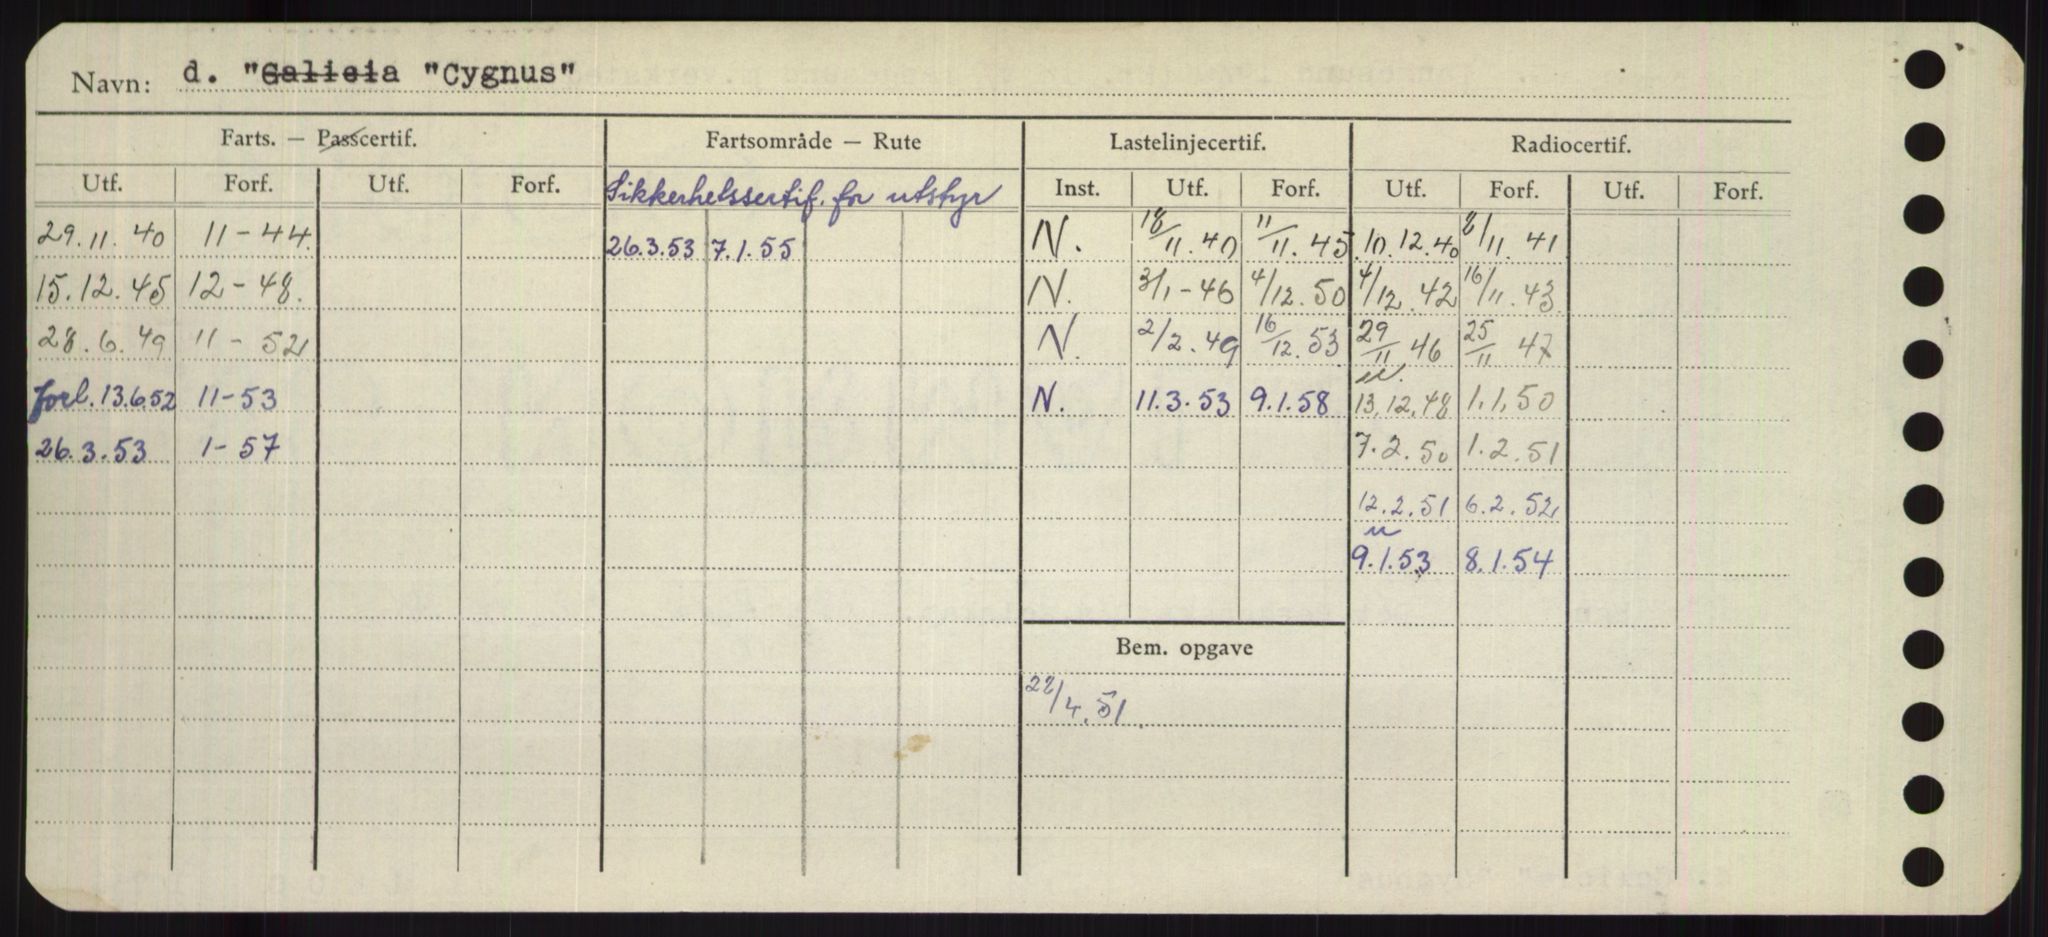 Navn: d. "Galicia "Cygnus"
Farts. — Passcertif. Fartsområde — Rute Lastelinjecertif. Radiocertif.
Utf. Forf. Utf. Forf. Sikkerhetssertif. for utstyr Inst. Utf. Forf. Utf. Forf. Utf. Forf.
29.11.40 11-44. 26.3.53 7.1.55 N. 18/11.40 11/11.45 10.12.40 8/11.41
15.12.45 12-48. N. 3/1-46 4/12.50 4/12.42 16/11.43
28.6.49 11-52 N. 2/2.49 16/12.53 29/11 46 25/11 47
forl. 13.6.52 11-53 N. 11.3.53 9.1.58 13.12.48 1.1.50
26.3.53 1-57 7.2.50 1.2.51
12.2.51 6.2.52
9.1.53 8.1.54
Bem. opgave
22/4.51.